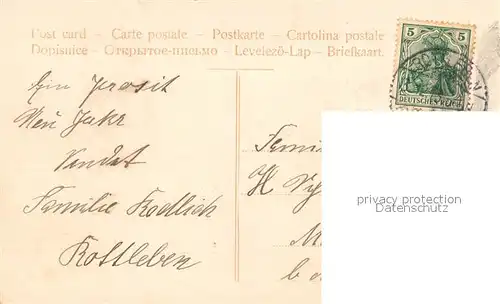 Post card – Carte postale – Postkarte – Cartolina postale
Dopisnice – Открытое-письмо – Levelező-Lap – Briefkaart.
5 5
DEUTSCHES REICH
Ein Prosit
Neu Jahr
Sendet
Familie Rodlick
Rottleben
Famil
H
privacy protection
Datenschutz